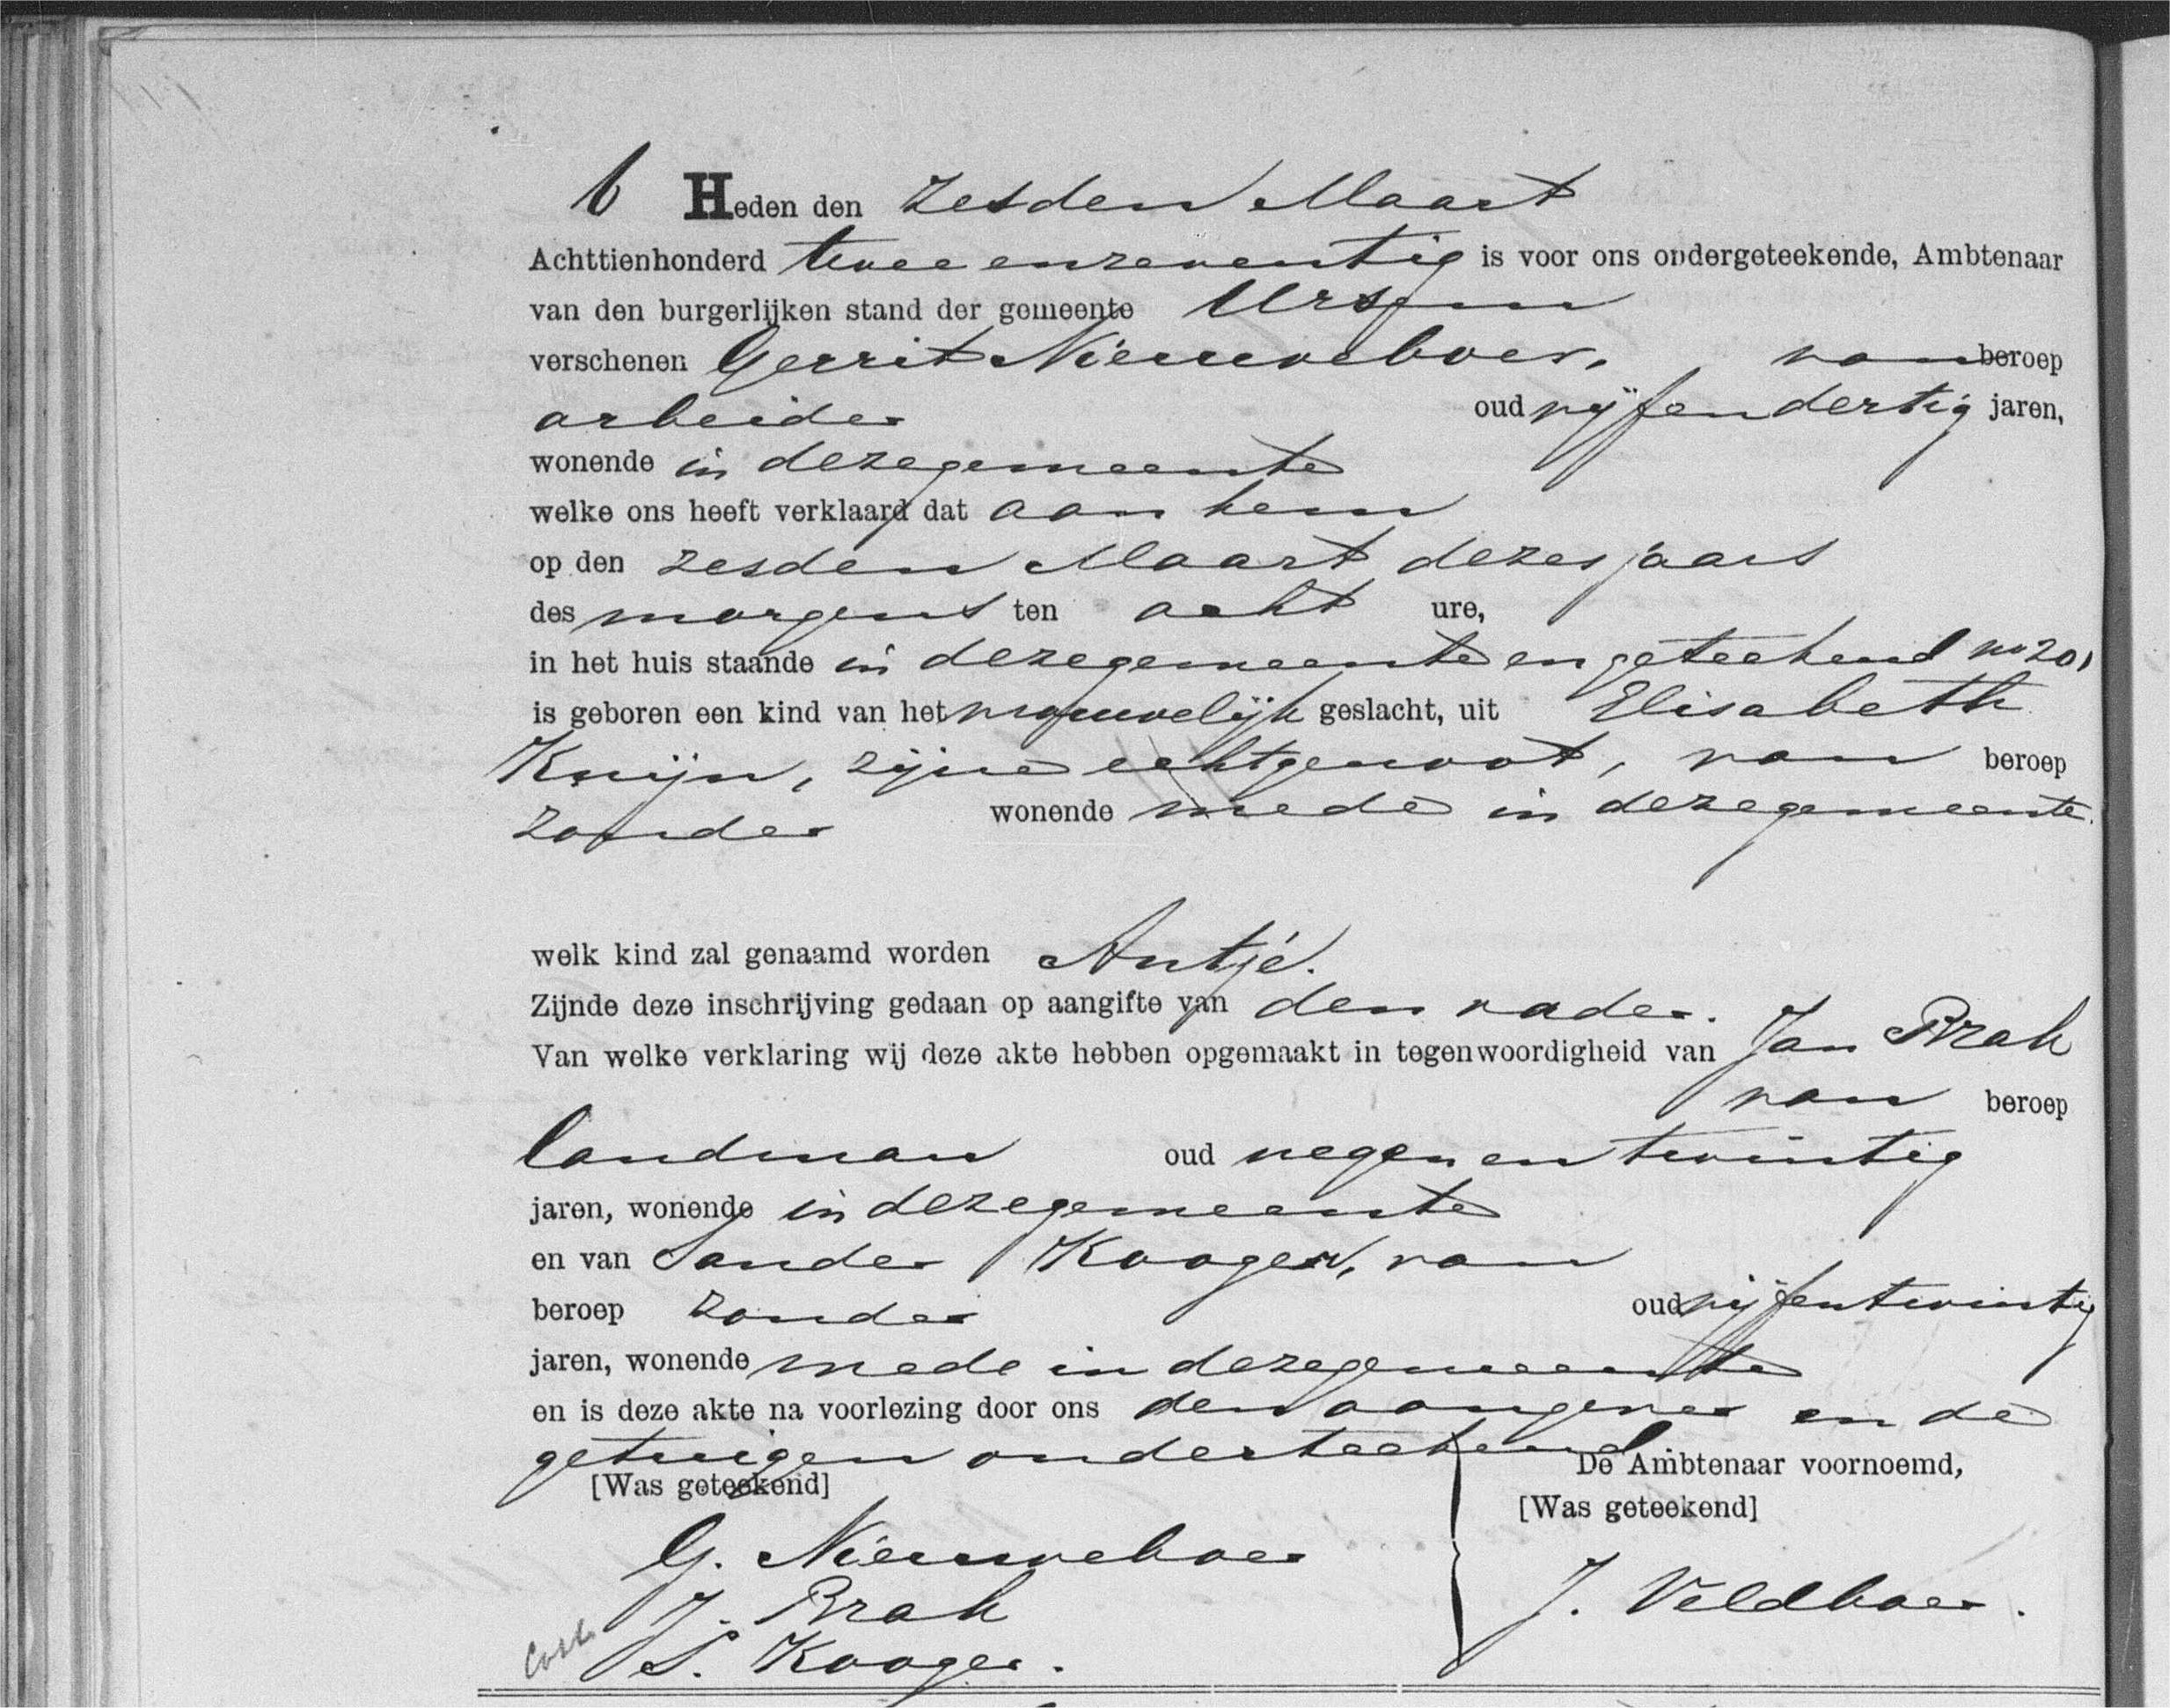 6 Heden den zesden Maart
Achttienhonderd twee en zeventig is voor ons ondergeteekende, Ambtenaar
van den burgerlijken stand der gemeente Ursem
verschenen Gerrit Nieuweboer, van beroep
arbeider oud vijf en dertig jaren,
wonende in deze gemeente
welke ons heeft verklaard dat aan hem
op den zesden Maart dezes jaars
des morgens ten acht ure,
in het huis staande in deze gemeente en geteekend no 201
is geboren een kind van het vrouwelijk geslacht, uit Elisabeth
Knijn, zijne echtgenoot, van beroep
zonder wonende mede in deze gemeente.
welk kind zal genaamd worden Antje.
Zijnde deze inschrijving gedaan op aangifte van den vader.
Van welke verklaring wij deze akte hebben opgemaakt in tegenwoordigheid van Jan Brak
van beroep
landman oud negen en twintig
jaren, wonende in deze gemeente
en van Sander Kooger, van
beroep zonder oud vijf en twintig
jaren, wonende mede in deze gemeente
en is deze akte na voorlezing door ons den aangever en de
getuigen onderteekend
[Was geteekend] De Ambtenaar voornoemd,
[Was geteekend]
G. Nieuweboer
J. Brak J. Veldboer.
S. Kooger.